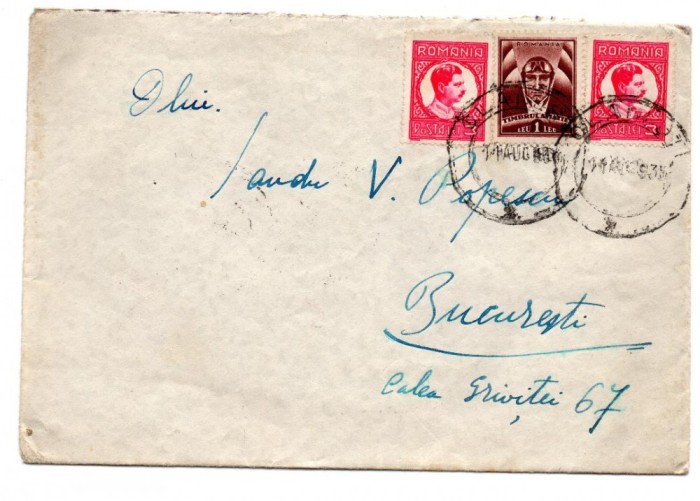 ROMANIA
POSTA LEI 3
ROMANIA
TIMBRUL AVIAȚIEI
LEU 1 LEU
ROMANIA
POSTA LEI 3
14 AUG 935
14 AUG 935
Dlui.
Sandu V. Popescu
București
Calea Griviței 67